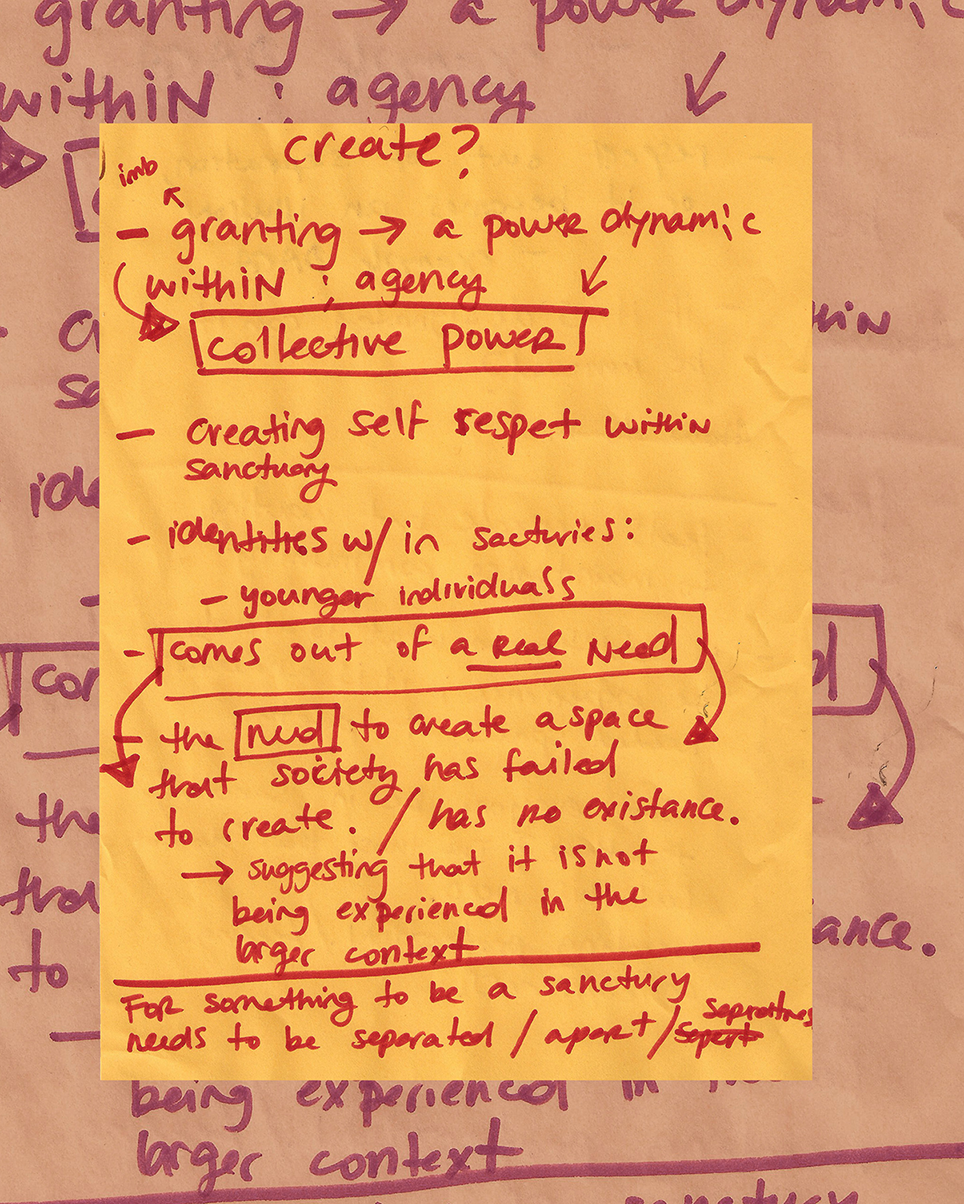 granting → a power dynamic
within : agency
create?
imb
- granting → a power dynamic
within : agency
collective power
- creating self respet within
sanctuory
- identities w/in sacturies:
- younger individuals
- comes out of a real need
- the need to create a space
that society has failed
to create. / has no existance.
→ suggesting that it is not
being experienced in the
larger context
For something to be a sanctury
needs to be separated / apart /
being experienced in the
larger context